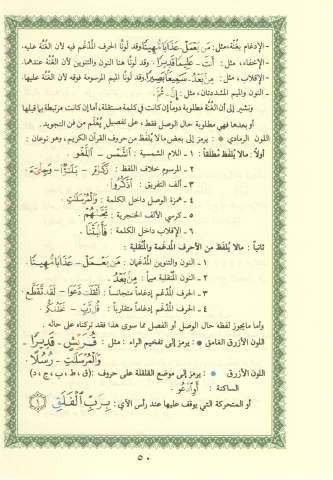 - الإدغام بغُنّة، مثل: مَن يَعْمَلْ - عَذَابًا مُّهِينًا وقد لوّنا الحرف المُدْغَم فيه لأن الغُنَّة عليه.
- الإخفاء، مثل: أَنتَ - عَلِيمًا قَدِيرًا، وقد لوّنا هنا النون والتنوين لأن الغُنَّة عندهما.
- الإقلاب، مثل: مِنۢ بَعْدِ - سَمِيعًۢا بَصِيرًا وقد لوّنا الميم المرسومة فوقه لأن الغُنَّة عليها.
- النون والميم المشددتان، مثل: إِنَّ - ثُمَّ.
ونشير إلى أن الغُنَّة مطلوبة دوماً إن كانت في كلمة مستقلة، أما إن كانت مرتبطة بما قبلها
أو بعدها فهي مطلوبة حال الوصل فقط، على تفصيل يُعْلَم من فن التجويد.
اللون الرمادي : يرمز إلى بعض مالا يُلفظ من حروف القرآن الكريم، وهو نوعان :
أولاً : مالا يُلفظ مُطلقاً : ١ - اللام الشمسية : الشَّمْس - اللَّغْو
٢ - المرسوم خلاف اللفظ :
٣ - ألف التفريق : اذْكُرُوا.
٤ - همزة الوصل داخل الكلمة : وَالْمُرْسَلَتِ.
٥ - كرسي الألف الخنجرية :
٦ - الإقلاب داخل الكلمة : فَأَنۢبَتْنَا.
ثانياً : مالا يُلفظ من الأحرف المُدغمة والمُنقلبة :
١ - النون والتنوين المُدْغمان : مَن يَعْمَلْ - عَذَابًا مُّهِينًا.
٢ - النون المُنقلبة ميماً : مِنۢ بَعْدِ.
٣ - الحرف المُدْغم إدغاماً متجانساً : أَثْقَلَت دَّعَوَا - لَقَد تَّقَطَّعَ.
٤ - الحرف المُدْغم إدغاماً متقارباً : قُل رَّبِّ - نَخْلُقكُّم
وأما مايجوز لفظه حال الوصل أو الفصل مما سوى هذا فقد تركناه على حاله .
اللون الأزرق الغامق : يرمز إلى تفخيم الراء : مثل : قُرَيْشٍ - قَدِيرًا -
وَالْمُرْسَلَتِ - رُسُلًا.
اللون الأزرق : يرمز إلى موضع القلقلة على حروف : (ق ، ط ، ب ، ج ، د)
الساكنة :
أو المتحركة التي يوقف عليها عند رأس الآي : بِرَبِّ الْفَلَقِ ١
٥٠